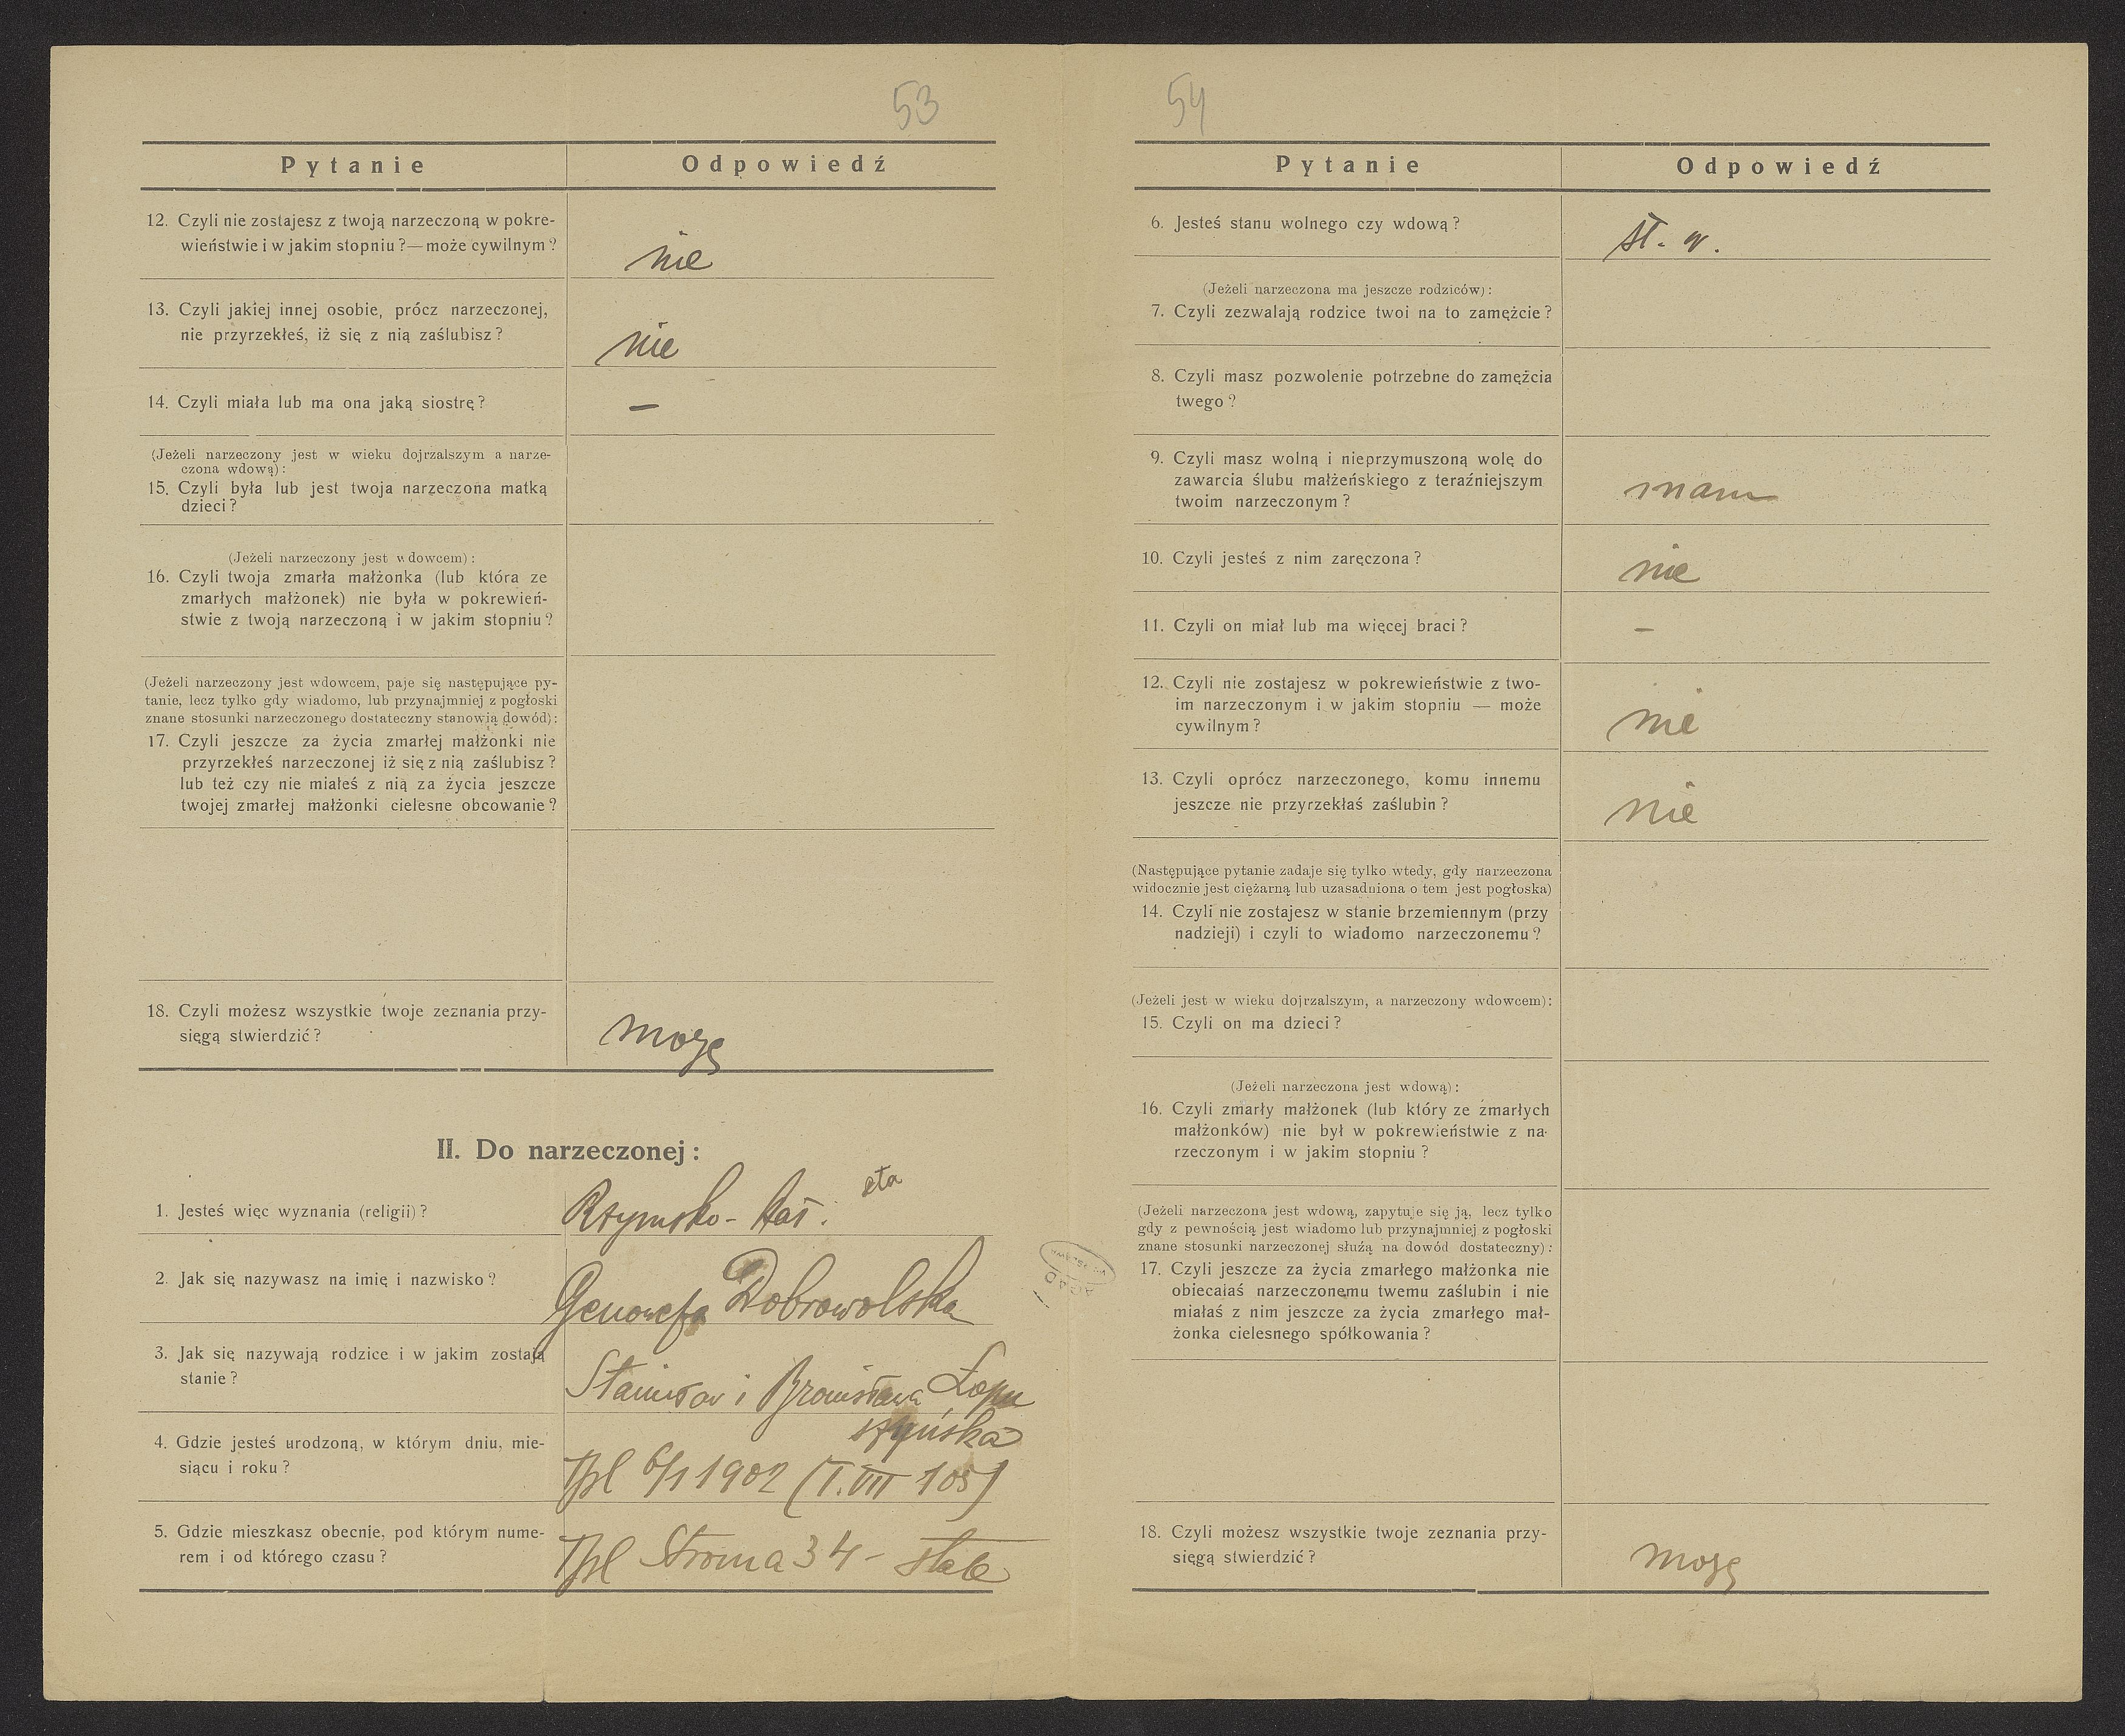 53
Pytanie Odpowiedź
12. Czyli nie zostajesz z twoją narzeczoną w pokre-
wieństwie i w jakim stopniu?—może cywilnym?
nie
13. Czyli jakiej innej osobie, prócz narzeczonej,
nie przyrzekłeś, iż się z nią zaślubisz?
nie
14. Czyli miała lub ma ona jaką siostrę?
—
(Jeżeli narzeczony jest w wieku dojrzalszym a narze-
czona wdową):
15. Czyli była lub jest twoja narzeczona matką
dzieci?
(Jeżeli narzeczony jest wdowcem):
16. Czyli twoja zmarła małżonka (lub która ze
zmarłych małżonek) nie była w pokrewień-
stwie z twoją narzeczoną i w jakim stopniu?
(Jeżeli narzeczony jest wdowcem, paje się następujące py-
tanie, lecz tylko gdy wiadomo, lub przynajmniej z pogłoski
znane stosunki narzeczonego dostateczny stanowią dowód):
17. Czyli jeszcze za życia zmarłej małżonki nie
przyrzekłeś narzeczonej iż się z nią zaślubisz?
lub też czy nie miałeś z nią za życia jeszcze
twojej zmarłej małżonki cielesne obcowanie?
18. Czyli możesz wszystkie twoje zeznania przy-
sięgą stwierdzić?
mogę
II. Do narzeczonej:
1. Jesteś więc wyznania (religii)?
Rzymsko-kat.
2. Jak się nazywasz na imię i nazwisko?
Genowefa Dobrowolska
3. Jak się nazywają rodzice i w jakim zostają
stanie?
Stanisław i Bronisława Łopu
szyńska
4. Gdzie jesteś urodzoną, w którym dniu, mie-
siącu i roku?
Tpl 6/1 1902 (T. VII 105)
5. Gdzie mieszkasz obecnie, pod którym nume-
rem i od którego czasu?
Tpl Stroma 34 - stale
54
Pytanie Odpowiedź
6. Jesteś stanu wolnego czy wdową?
st. w.
(Jeżeli narzeczona ma jeszcze rodziców):
7. Czyli zezwalają rodzice twoi na to zamężcie?
8. Czyli masz pozwolenie potrzebne do zamężcia
twego?
9. Czyli masz wolną i nieprzymuszoną wolę do
zawarcia ślubu małżeńskiego z teraźniejszym
twoim narzeczonym?
mam
10. Czyli jesteś z nim zaręczona?
nie
11. Czyli on miał lub ma więcej braci?
–
12. Czyli nie zostajesz w pokrewieństwie z two-
im narzeczonym i w jakim stopniu — może
cywilnym?
nie
13. Czyli oprócz narzeczonego, komu innemu
jeszcze nie przyrzekłaś zaślubin?
nie
(Następujące pytanie zadaje się tylko wtedy, gdy narzeczona
widocznie jest ciężarną lub uzasadniona o tem jest pogłoska)
14. Czyli nie zostajesz w stanie brzemiennym (przy
nadzieji) i czyli to wiadomo narzeczonemu?
(Jeżeli jest w wieku dojrzalszym, a narzeczony wdowcem):
15. Czyli on ma dzieci?
(Jeżeli narzeczona jest wdową):
16. Czyli zmarły małżonek (lub który ze zmarłych
małżonków) nie był w pokrewieństwie z na-
rzeczonym i w jakim stopniu?
(Jeżeli narzeczona jest wdową, zapytuje się ją, lecz tylko
gdy z pewnością jest wiadomo lub przynajmniej z pogłoski
znane stosunki narzeczonej służą na dowód dostateczny):
17. Czyli jeszcze za życia zmarłego małżonka nie
obiecałaś narzeczonemu twemu zaślubin i nie
miałaś z nim jeszcze za życia zmarłego mał-
żonka cielesnego spółkowania?
18. Czyli możesz wszystkie twoje zeznania przy-
sięgą stwierdzić?
mogę
AGAD